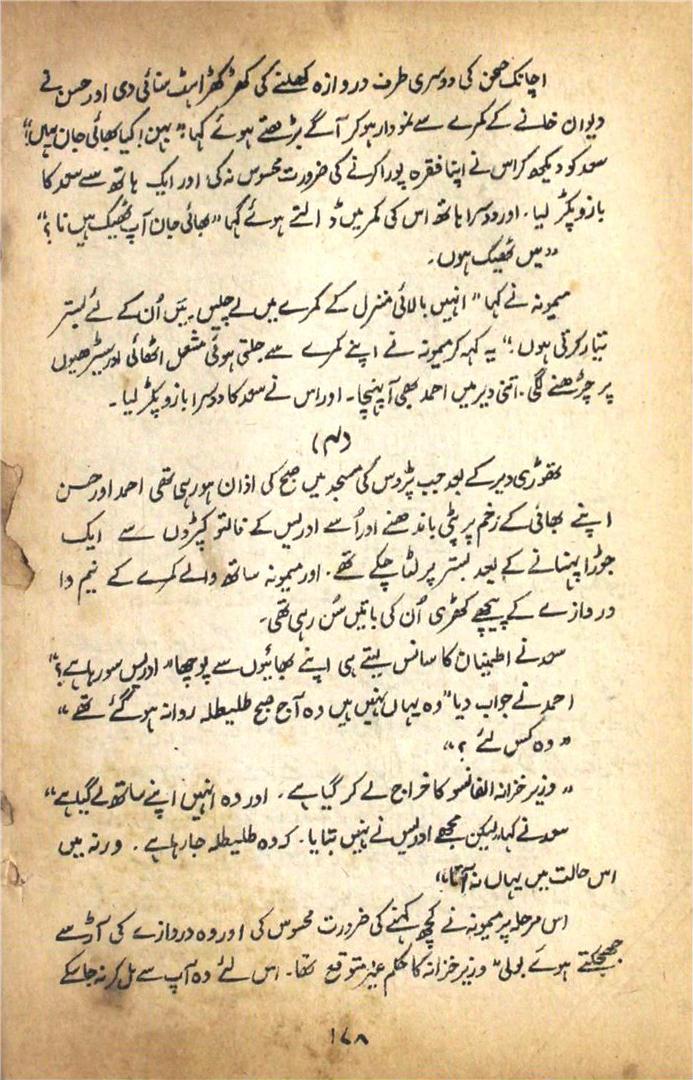 اچانک صحن کی دوسری طرف دروازہ کھلنے کی کھڑکھڑاہٹ سنائی دی اور حسن نے
دیوان خانے کے کمرے سے نمودار ہو کر آگے بڑھتے ہوئے کہا "بہن! کیا بھائی جان ہیں!"
سعد کو دیکھ کر اس نے اپنا فقرہ پورا کرنے کی ضرورت محسوس نہ کی اور ایک ہاتھ سے سعد کا
بازو پکڑ لیا۔ اور دوسرا ہاتھ اس کی کمر میں ڈالتے ہوئے کہا "بھائی جان آپ ٹھیک ہیں نا؟"
"میں ٹھیک ہوں۔
میمونہ نے کہا "انہیں بالائی منزل کے کمرے میں لے چلیں۔ میں اُن کے لئے بستر
تیار کرتی ہوں۔" یہ کہہ کر میمونہ نے اپنے کمرے سے جلتی ہوئی مشعل اٹھائی اور سیڑھیوں
پر چڑھنے لگی۔ اتنی دیر میں احمد بھی آ پہنچا۔ اور اس نے سعد کا دوسرا بازو پکڑ لیا۔
(۴)
تھوڑی دیر کے بعد جب پڑوس کی مسجد میں صبح کی اذان ہو رہی تھی احمد اور حسن
اپنے بھائی کے زخم پر پٹی باندھنے اور اُسے ادریس کے فالتو کپڑوں سے ایک
جوڑا پہنانے کے بعد بستر پر لٹا چکے تھے۔ اور میمونہ ساتھ والے کمرے کے نیم وا
دروازے کے پیچھے کھڑی اُن کی باتیں سُن رہی تھی۔
سعد نے اطمینان کا سانس لیتے ہی اپنے بھائیوں سے پوچھا "ادریس سو رہا ہے؟"
احمد نے جواب دیا "وہ یہاں نہیں ہیں وہ آج صبح طلیطلہ روانہ ہو گئے تھے"
"وہ کس لئے؟"
"وزیر خزانہ الفانسو کا خراج لے کر گیا ہے۔ اور وہ انہیں اپنے ساتھ لے گیا ہے"
سعد نے کہا "لیکن مجھے ادریس نے نہیں بتایا۔ کہ وہ طلیطلہ جا رہا ہے۔ ورنہ میں
اس حالت میں یہاں نہ آتا"
اس مرحلہ پر میمونہ نے کچھ کہنے کی ضرورت محسوس کی اور وہ دروازے کی آڑ سے
جھجکتے ہوئے بولی "وزیر خزانہ کا حکم غیر متوقع تھا۔ اس لئے وہ آپ سے مل کر نہ جا سکے
۱۷۸